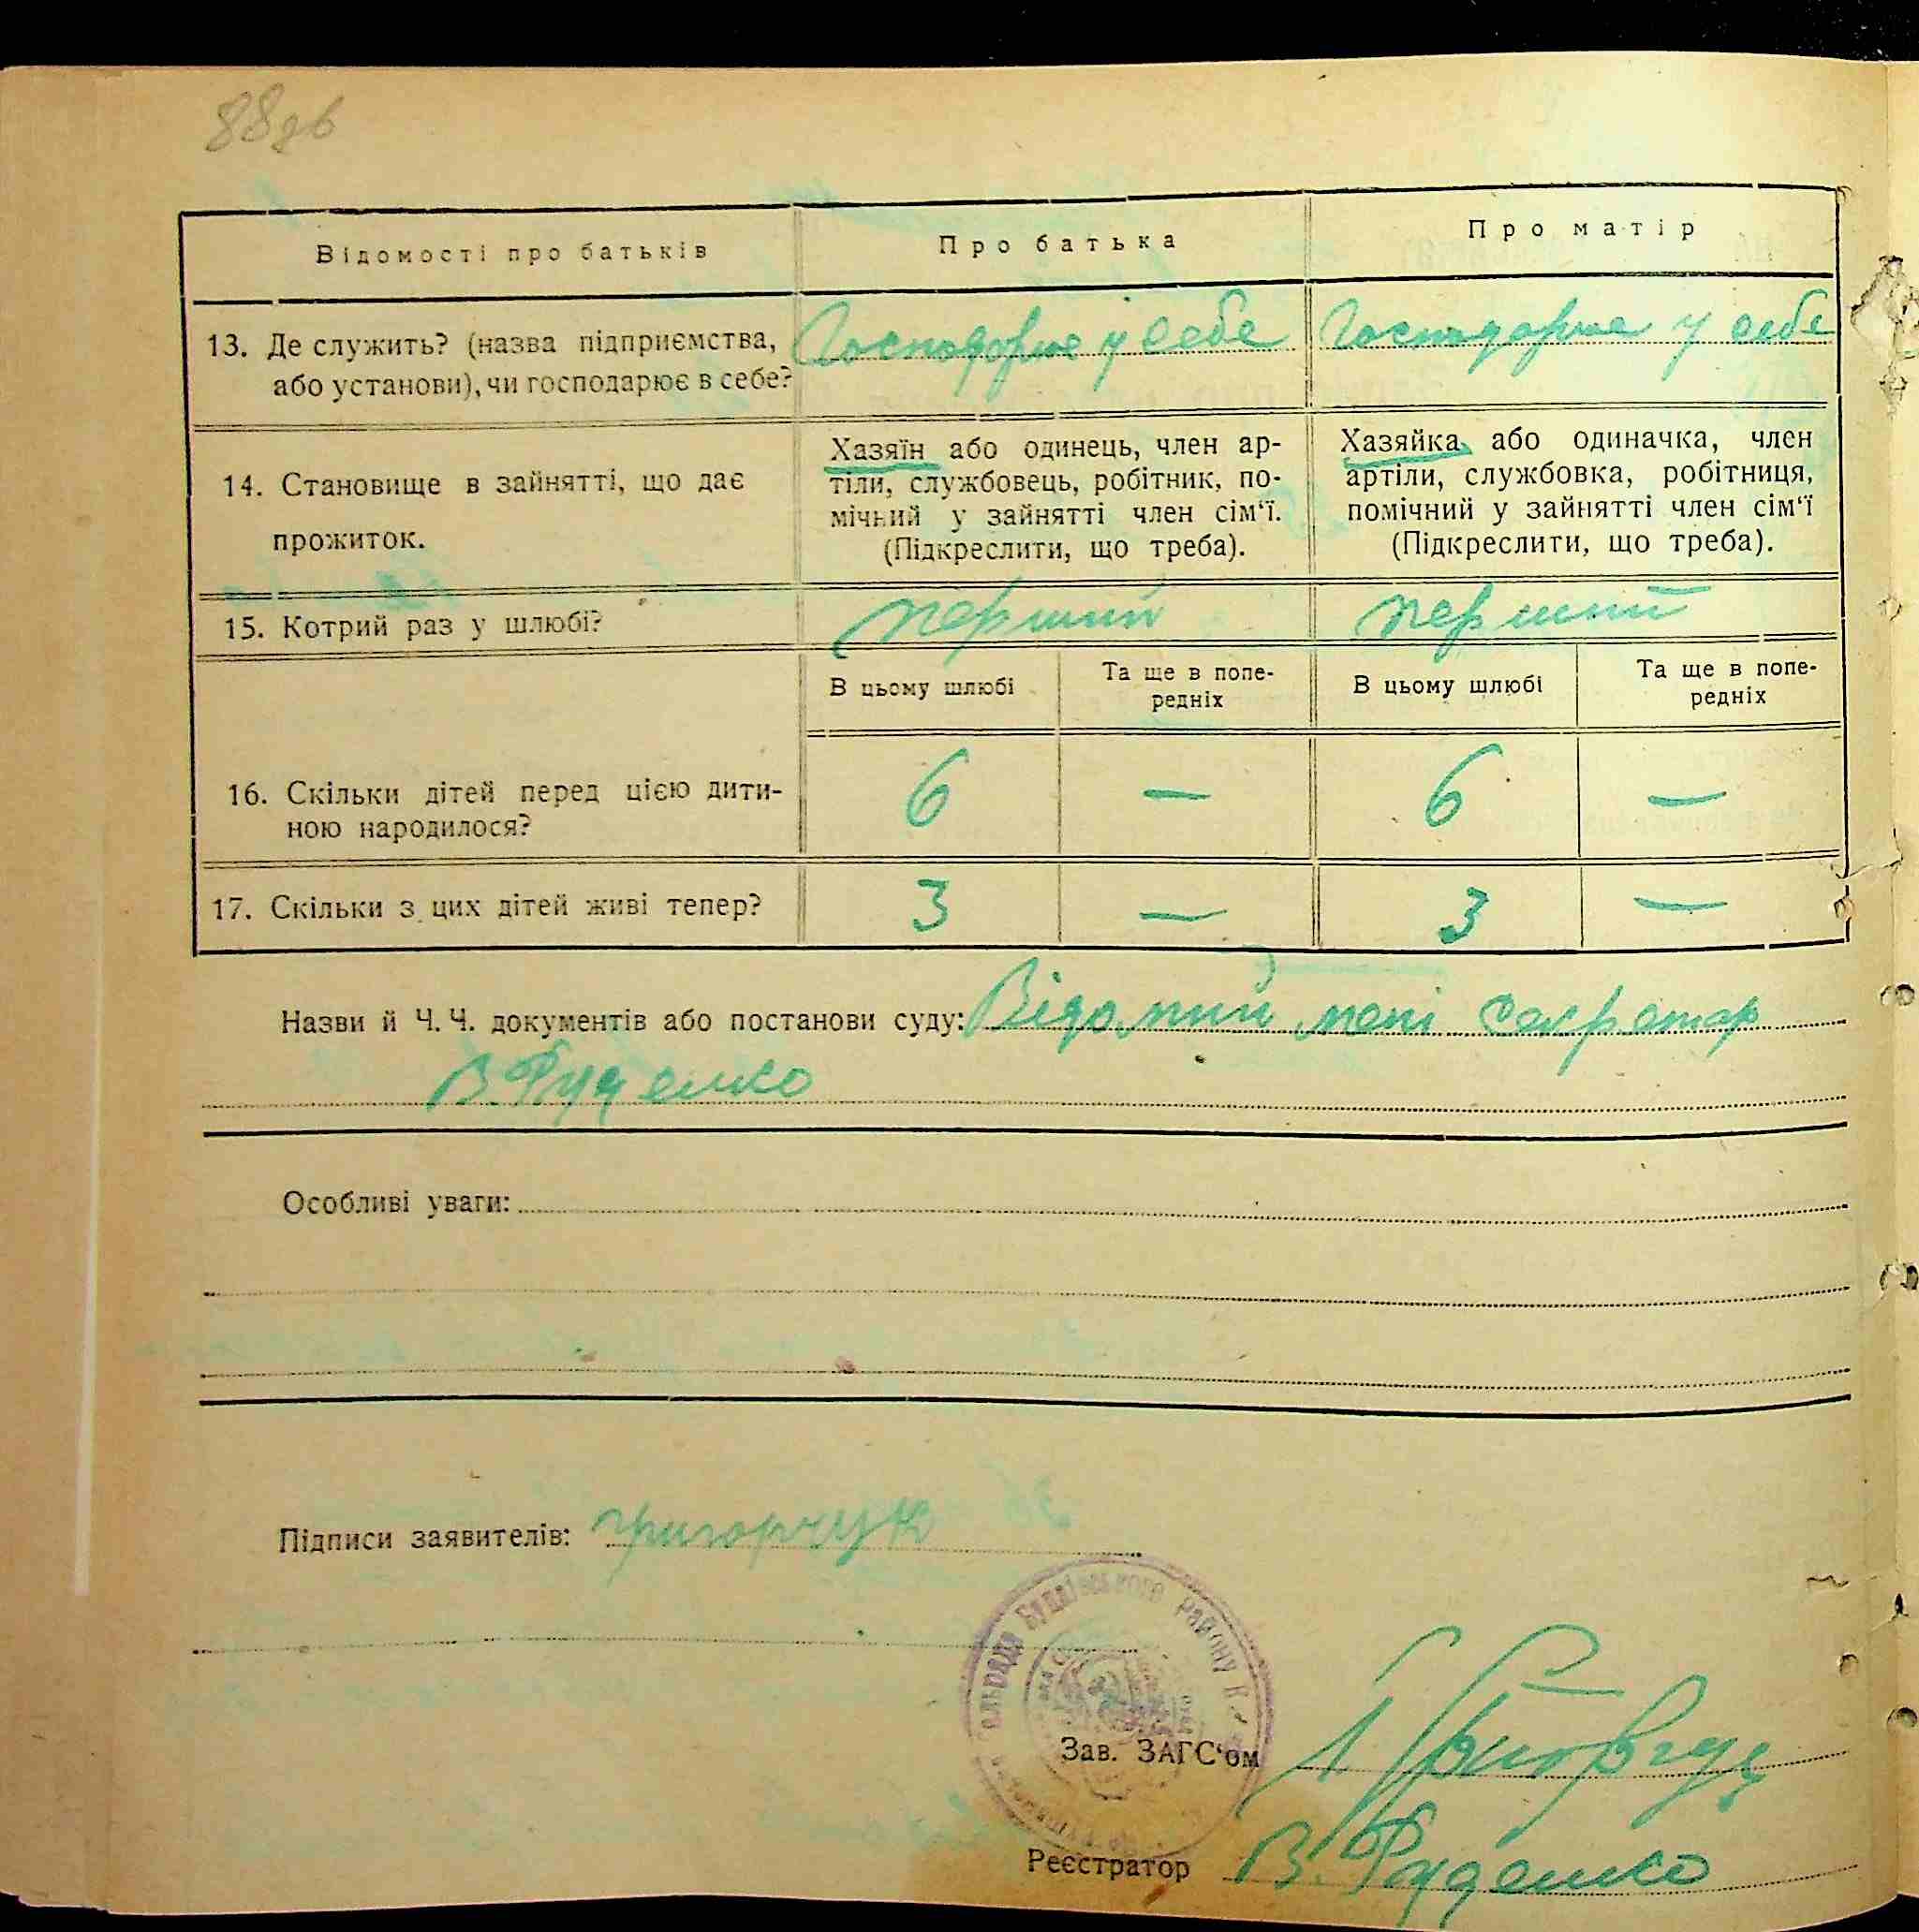 88зв
Відомості про батьків
Про батька
Про матір
13. Де служить? (назва підприємства,
або установи), чи господарює в себе?
Господарює у себе
Господарює у себе
14. Становище в зайнятті, що дає
прожиток.
Хазяїн або одинець, член ар-
тіли, службовець, робітник, по-
мічний у зайнятті член сім'ї.
(Підкреслити, що треба).
Хазяйка або одиначка, член
артіли, службовка, робітниця,
помічний у зайнятті член сім'ї
(Підкреслити, що треба).
15. Котрий раз у шлюбі?
перший
перший
В цьому шлюбі
Та ще в попе-
редніх
В цьому шлюбі
Та ще в попе-
редніх
16. Скільки дітей перед цією дити-
ною народилося?
6 — 6 —
17. Скільки з цих дітей живі тепер?
3 — 3 —
Назви й Ч. Ч. документів або постанови суду: Відомий мені секретар
В. Руденко
Особливі уваги:
Підписи заявителів: Григорчук
льрада Буднівського Району К.
Зав. ЗАГС'ом
Реєстратор В. Руденко